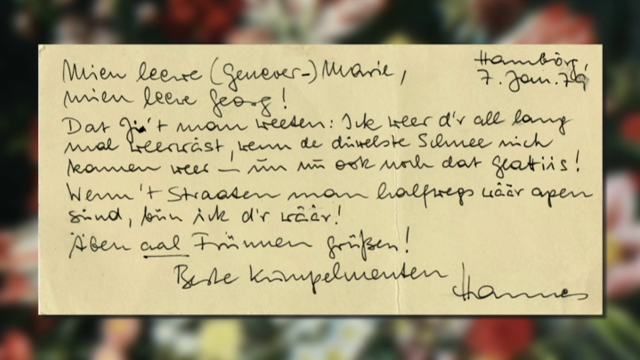 Hambörg,
7. Jan. 79
Mien leewe (Genever-) Marie,
mien leewe Georg!
Dat Ji't man weeten: Ick weer d'r all lang
mal weerwäst, wenn de düwelste Schnee nich
kommen weer — un nu ook noch dat Glattiis!
Wenn't Straaten man halfwegs wäär apen
sünd, bün ick d'r wäär!
Äben aal Frünnen grüßen!
Beste Kumpelmenten
Hannes